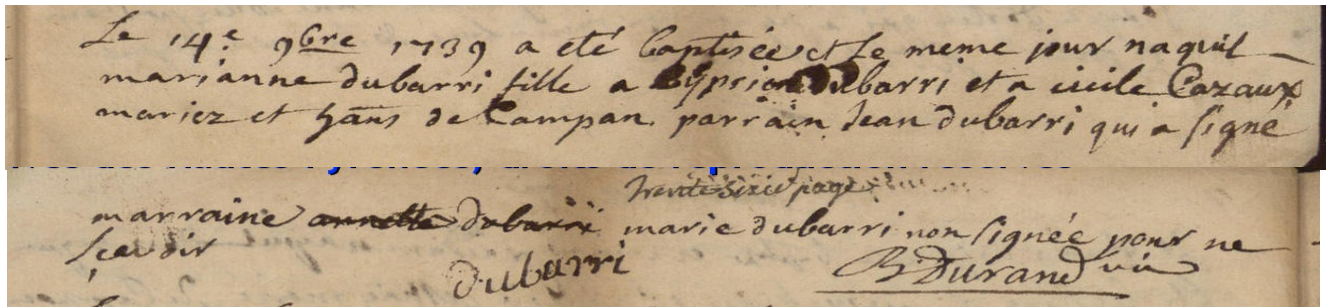 Le 14.e 9bre 1739 a eté baptisée et le meme jour naquit
marianne dubarri fille a Cyprien Dubarri et a cicile Cazaux
mariez et hans de Campan. parrain Jean dubarri qui a signé
trente sizie page
marraine annette dubarri marie dubarri non signée pour ne
sçavoir
dubarri
B. Durand vic